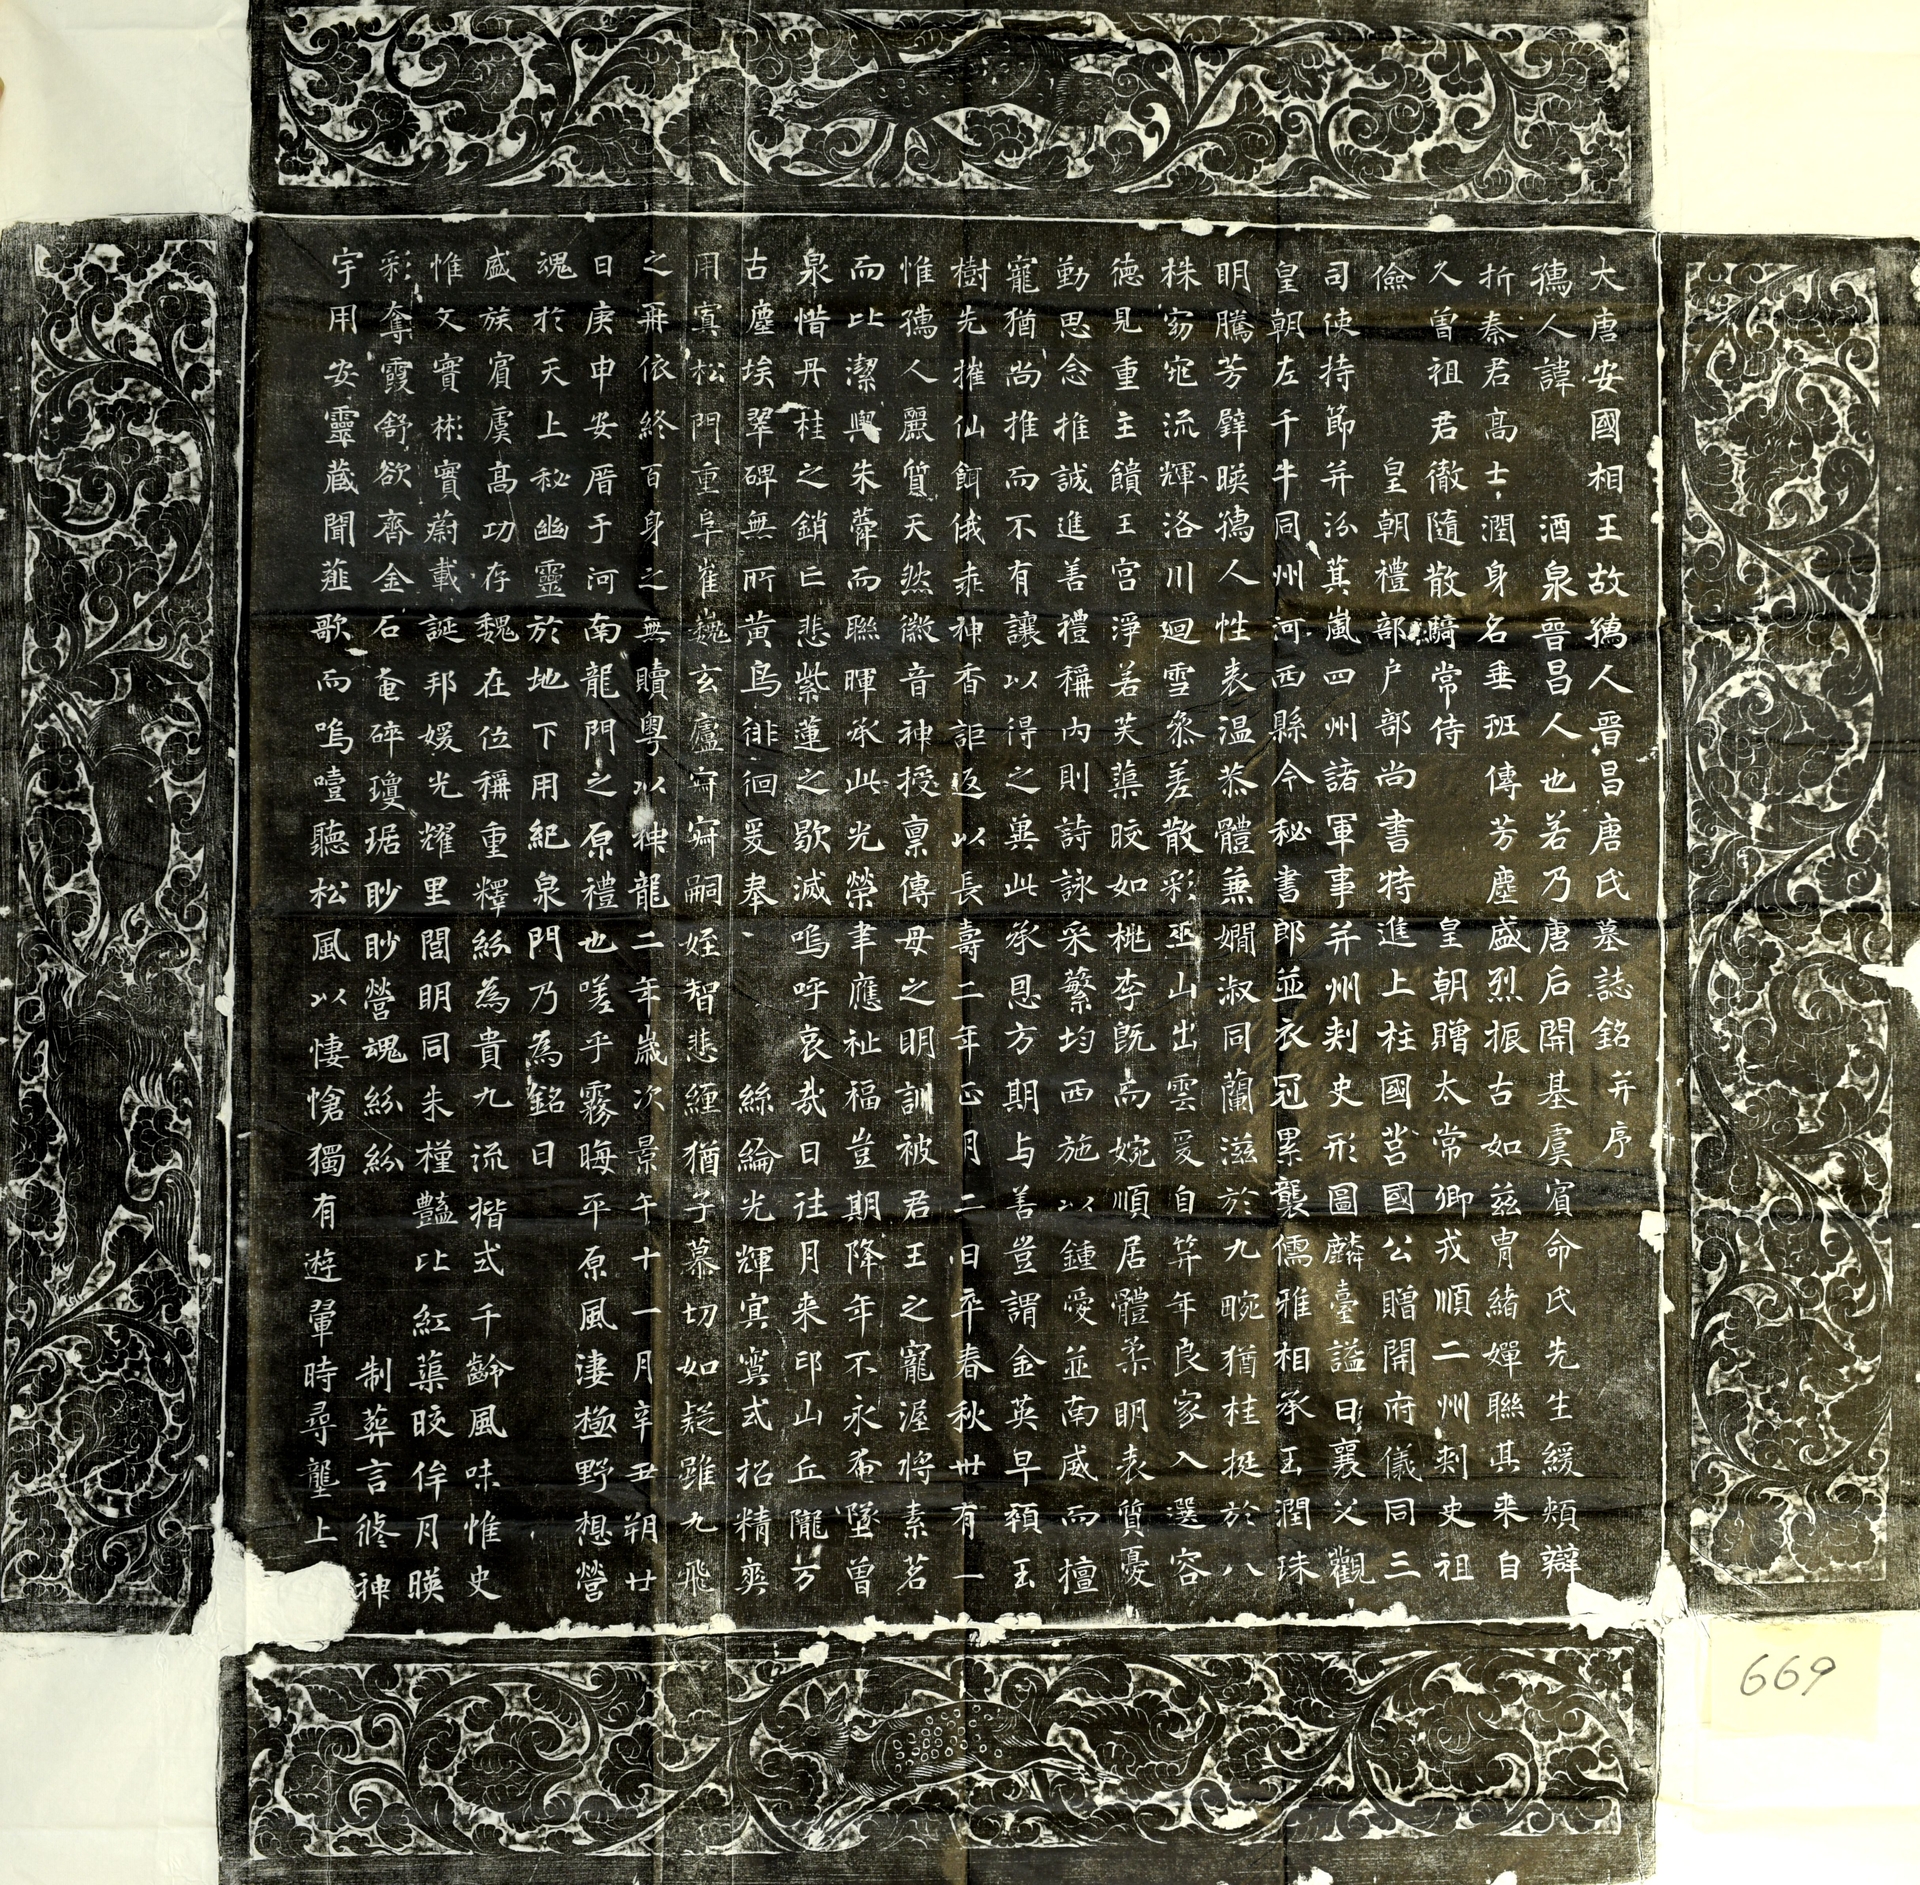 大唐安國相王故孺人晉昌唐氏墓誌銘并序
孺人諱 酒泉晉昌人也若乃唐后開基虞賓命氏先生緩頰辯
折秦君高士潤身名垂班傳芳塵盛烈振古如兹冑緒嬋聯其来自
久曾祖君徹隨散騎常侍 皇朝贈太常卿戎順二州刺史祖
儉 皇朝禮部户部尚書特進上柱國莒國公贈開府儀同三
司使持節并汾箕嵐四州諸軍事并州刺史形圖麟臺謚曰襄父觀
皇朝左千牛同州河西縣令秘書郎並衣冠累襲儒雅相承玉潤珠
明騰芳嬖暎孺人性表温恭體兼嫺淑同蘭滋於九畹猶桂挺於八
株窈窕流輝洛川迴雪叅差散彩巫山出雲爰自笄年良家入選容
德見重主饋王宫淨若芙蕖晈如桃李既而婉順居體柔明表質憂
勤思念推誠進善禮稱内則詩詠采蘩均西施以鍾愛並南威而擅
寵猶尚推而不有讓以得之兾此承恩方期与善豈謂金英早頹玉
樹先摧仙餌俄乖神香詎返以長壽二年正月二日卒春秋卅有一
惟孺人麗質天然徽音神授稟傳母之明訓被君王之寵渥將素茗
而比潔與朱蕣而聯暉承此光榮聿應祉福豈期降年不永奄墜曾
泉惜丹桂之銷亡悲紫蓮之歇滅嗚呼哀哉日往月来邙山丘隴万
古塵埃翠碑無所黄鳥徘徊爰奉 絲綸光輝㝠寞式招精爽
用寘松門重阜崔巍玄廬寂嗣姪智悲纏猶子慕切如疑雖九飛
之再依終百身之無贖粵以神龍二年歲次景午十一月辛丑朔廿
日庚申安厝于河南龍門之原禮也嗟乎霧晦平原風淒極野想營
魂於天上秘幽靈於地下用紀泉門乃為銘曰
盛族賓虞高功存魏在位稱重釋紛為貴九流揩式千齡風味惟史
惟文實彬實蔚載誕邦媛光耀里閭明同朱槿豔比紅蕖晈侔月暎
彩奪霞舒欲齊金石奄碎瓊琚眇眇營魂紛紛 制葬言終神
宇用安靈蔵聞薤歌而嗚噎聽松風以悽愴獨有遊翬時尋壟上
669